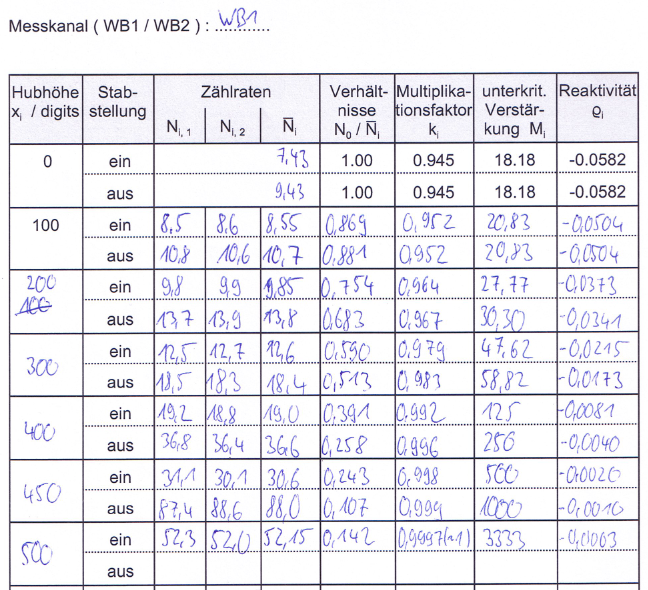 Messkanal ( WB1 / WB2 ) : WB1
Hubhöhe Stab- Zählraten Verhält- Multiplika- unterkrit. Reaktivität
xi / digits stellung nisse tionsfaktor Verstär- ϱi
Ni, 1 Ni, 2 N̅i N0 / N̅i ki kung Mi
0 ein 7,43 1.00 0.945 18.18 -0.0582
aus 9,43 1.00 0.945 18.18 -0.0582
100 ein 8,5 8,6 8,55 0,869 0,952 20,83 -0,0504
aus 10,8 10,6 10,7 0,881 0,952 20,83 -0,0504
200 ein 9,8 9,9 9,85 0,754 0,964 27,77 -0,0373
100 aus 13,7 13,9 13,8 0,683 0,967 30,30 -0,0341
300 ein 12,5 12,7 12,6 0,590 0,979 47,62 -0,0215
aus 18,5 18,3 18,4 0,513 0,983 58,82 -0,0173
400 ein 19,2 18,8 19,0 0,391 0,992 125 -0,0081
aus 36,8 36,4 36,6 0,258 0,996 250 -0,0040
450 ein 31,1 30,1 30,6 0,243 0,998 500 -0,0020
aus 87,4 88,6 88,0 0,107 0,999 1000 -0,0010
500 ein 52,3 52,0 52,15 0,142 0,9997(~1) 3333 -0,0003
aus